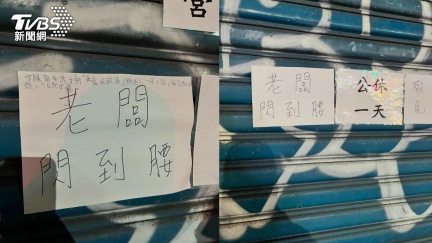 TVBS
新聞網
宮
老闆
閃到腰
老闆
閃到腰
公休
一天